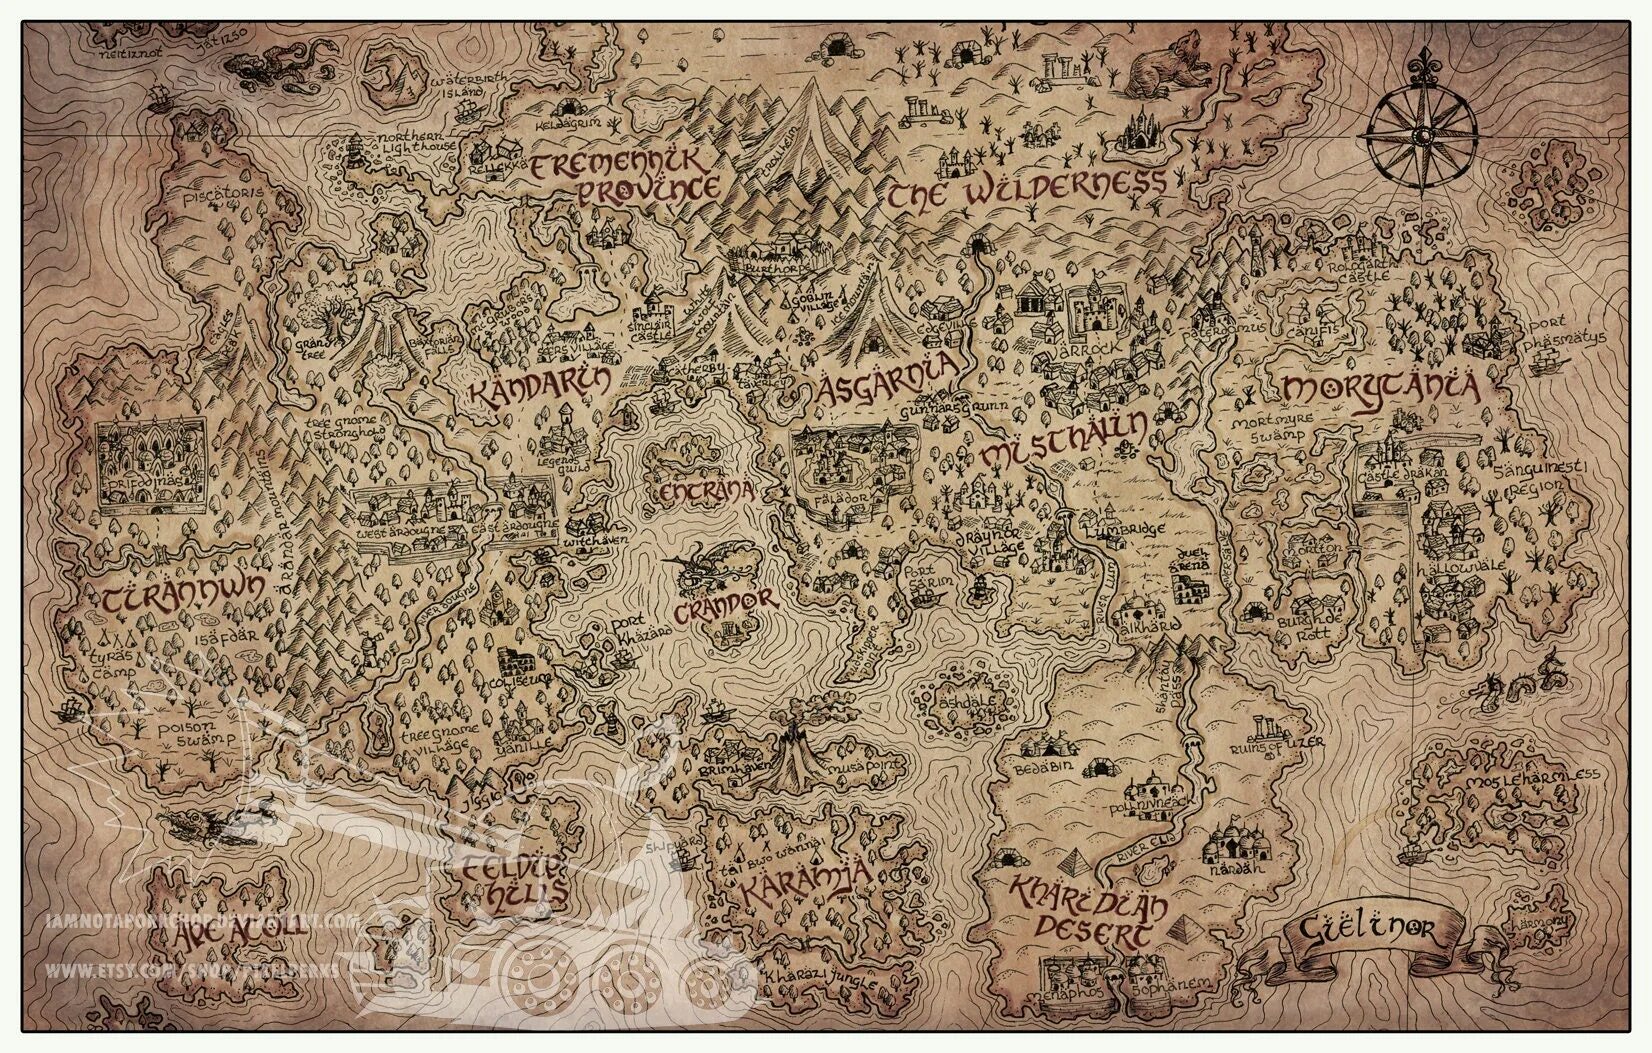 Neitiznot
Jatizso
Waterbirth
Island
Keldagrim
Northern
Lighthouse
Rellekka
Fremennik
Province
Trollheim
The Wilderness
Piscatoris
Burthorpe
White
Wolf
Mountain
Goblin
Village
Ice Mountain
Edgeville
Varrock
Paterdomus
Canifis
Port
Phasmatys
Eagles
Peak
Grand
Tree
Baxtorian
Falls
Seers Village
Sinclair
Castle
Catherby
Taverley
Kandarin
Asgarnia
Gunnarsgrunn
Misthalin
Morytania
Mortmyre
Swamp
Tree Gnome
Stronghold
Legends
Guild
Prifddinas
Arandar Mountains
West Ardougne
East Ardougne
Witchaven
Entrana
Falador
Draynor
Village
Lumbridge
Duel
Arena
River Lum
Al Kharid
Castle Drakan
Sanguinesti
Region
Mortton
Hallowvale
Burgh de
Rott
Tirannwn
Isafdar
Tyras
Camp
Poison
Swamp
River Dougne
Port
Khazard
Crandor
Port
Sarim
Coliseum
Tree Gnome
Village
Yanille
Ashdale
Shantay
Pass
Bedabin
Ruins of Uzer
Pollnivneach
River Elid
Nardah
Brimhaven
Musa Point
Jiggig
Feldip
Hills
Shipyard
Tai Bwo Wannai
Karamja
Kharazi Jungle
Kharidian
Desert
Menaphos
Sophanem
Mos Leharmless
Harmony
Gielinor
Ape Atoll
IAMNOTAPORKCHOP.DEVIANTART.COM
WWW.ETSY.COM/SHOP/PIXELPERKS